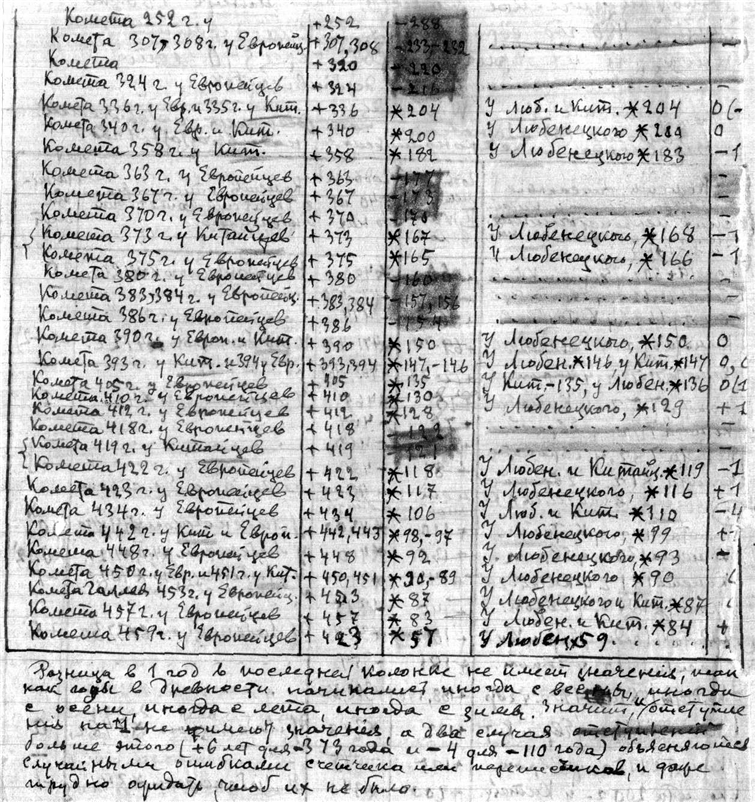 Комета 252 г. у +252 -288
Комета 307, 308 г. у Европейц. +307,308 -233-232
Комета +320 -220
Комета 324 г. у Европейцев +324 -216
Комета 336 г. у Евр. и 335 г. у Кит. +336 *204 У Люб. и Кит. *204 0
Комета 340 г. у Евр. и Кит. +340 *200 У Любенецкого *200 0
Комета 358 г. у Кит. +358 *182 У Любенецкого *183 -1
Комета 363 г. у Европейцев +363 -177 -
Комета 367 г. у Европейцев +367 -173 -
Комета 370 г. у Европейцев +370 -170
Комета 373 г. у Китайцев +373 *167 У Любенецкого, *168 -1
Комета 375 г. у Европейцев +375 *165 У Любенецкого, *166 -1
Комета 380 г. у Европейцев +380 -160 -
Комета 383,384 г. у Европейц. +383,384 -157,156 -
Комета 386 г. у Европейцев +386 -154 -
Комета 390 г. у Европ. и Кит. +390 *150 У Любенецкого, *150 0
Комета 393 г. у Кит. и 394 у Евр. +393,394 *147,-146 У Любен. *146 у Кит. *147 0,
Комета 405 г. у Европейцев +405 *135 У Кит. -135, у Любен. *136
Комета 410 г. у Европейцев +410 *130
Комета 412 г. у Европейцев +412 *128 У Любенецкого, *129 +1
Комета 418 г. у Европейцев +418 -122 -
Комета 419 г. у Китайцев +419 -121 -
Комета 422 г. у Европейцев +422 *118 У Любен. и Китайц. *119 -1
Комета 423 г. у Европейцев +423 *117 У Любенецкого, *116 +1
Комета 434 г. у Европейцев +434 *106 У Люб. и Кит. *110 -4
Комета 442 г. у Кит и Европ. +442,443 *98,-97 У Любенецкого, *99 +
Комета 448 г. у Европейцев +448 *92 У Любенецкого, *93 -
Комета 450 г. у Евр. и 451 г. у Кит. +450,451 *90,-89 У Любенецкого *90
Комета Галлея 453 г. у Европейц. +453 *87 У Любенецкого и Кит. *87
Комета 457 г. у Европейцев +457 *83 У Любен. и Кит. *84 +
Комета 459 г. у Европейцев +423 *57 У Любен, *59.
Разница в 1 год в последней колонке не имеет значения, так
как годы в древности начинают иногда с весны, иногда
с осени иногда с лета, иногда с зимы. Значит, "отступле
ния на 1" не имеют значения, а два случая отступлений
больше этого (+6 лет для -373 года и -4 для -110 года) объясняются
случайными ошибками счетчика или переписчиков, и даже
трудно ожидать, чтоб их не было.